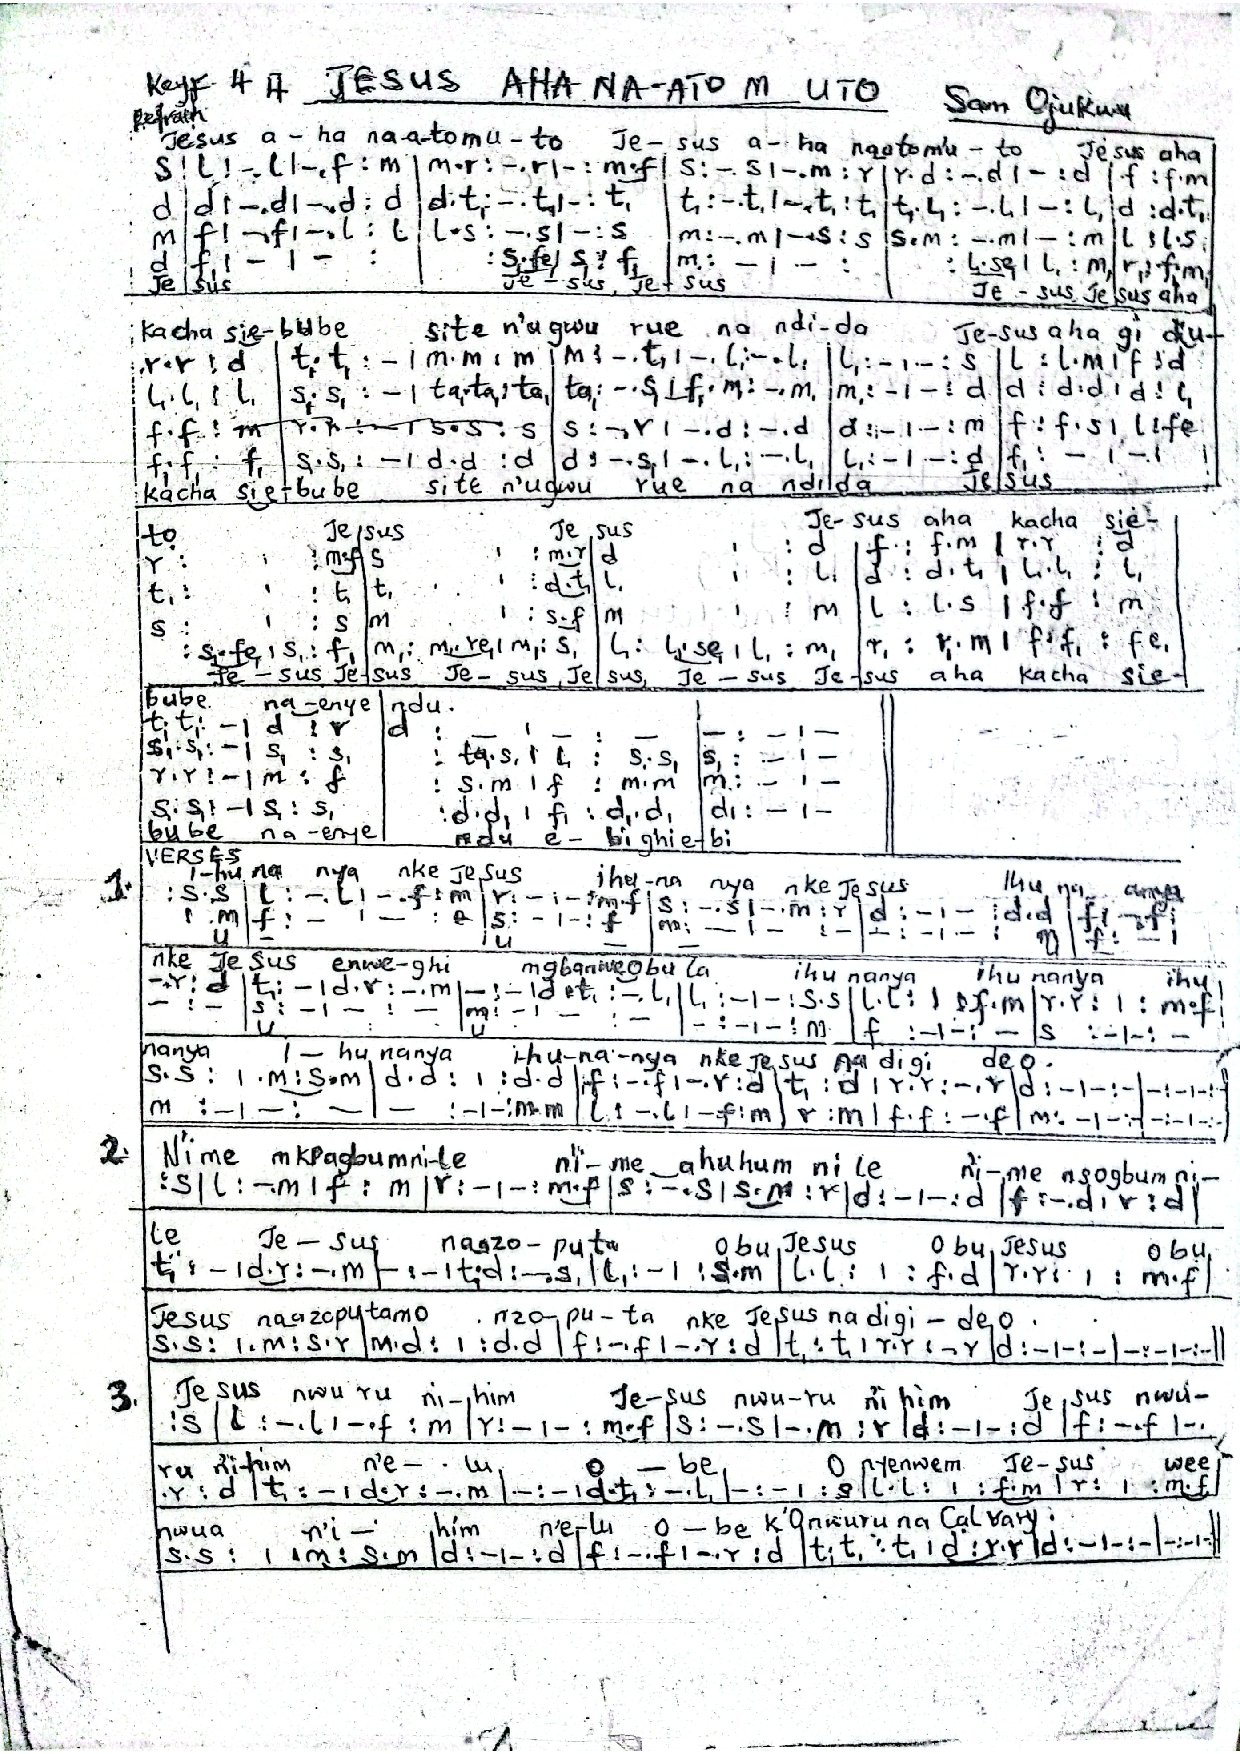 Key F 4 A JESUS AHA NA-ATO M UTO Sam Ojukwu
Refrain
Jesus a - ha na-a-tomu - to Je - sus a - ha naatomu - to Jesus aha
S | l : -. l | -. f : m | m.r : -. r | - : m.f | s : -. s | -. m : r | r.d : -. d | - : d | f : f.m
d | d : -. d | -. d : d | d.t₁ : -. t₁ | - : t₁ | t₁ : -. t₁ | -. t₁ : t₁ | t₁.l₁ : -. l₁ | - : l₁ | d : d.t₁
m | f : -. f | -. l : l | l.s : -. s | - : s | m : -. m | -. s : s | s.m : -. m | - : m | l : l.s
d | f : - | - : | : s₁.fe₁ | s₁ : f₁ | m₁ : - | - : | : l₁.se₁ | l₁ : m₁ | r₁ : f₁.m₁
Je sus Je - sus, Je - sus Je - sus Je sus aha
kacha sie-bube site n'ugwu rue na ndi-da Je-sus aha gi du-
r.r : d | t₁.t₁ : - | m.m : m | m : -. t₁ | -. l₁ : -. l₁ | l₁ : - | - : s | l : l.m | f : d
l₁.l₁ : l₁ | s₁.s₁ : - | ta₁.ta₁ : ta₁ | ta₁ : -. s₁ | f₁.m₁ : -. m₁ | m₁ : - | - : d | d : d.d | d : l₁
f.f : m | r.r : - | s.s : s | s : -. r | -. d : -. d | d : - | - : m | f : f.s | l : fe
f₁.f₁ : f₁ | s₁.s₁ : - | d.d : d | d : -. s₁ | -. l₁ : -. l₁ | l₁ : - | - : d | f₁ : - | - . |
kacha sie-bube site n'ugwu rue na ndida Je sus
to Je sus Je sus Je-sus aha kacha sie-
r : : m.f | s : m.r | d : d | f : f.m | r.r : d
t₁ : : t₁ | t₁ : d.t₁ | l₁ : l₁ | d : d.t₁ | l₁.l₁ : l₁
s : : s | m : s.f | m : m | l : l.s | f.f : m
: s₁.fe₁ | s₁ : f₁ | m₁ : m₁.re₁ | m₁ : s₁ | l₁ : l₁.se₁ | l₁ : m₁ | r₁ : r₁.m | f₁.f₁ : fe₁
Je - sus Je-sus Je - sus, Je sus, Je - sus Je-sus aha kacha sie-
bube na-enye ndu.
t₁.t₁ : - | d : r | d : - | - : - | - : - | -
s₁.s₁ : - | s₁ : s₁ | : ta₁.s₁ | l₁ : s₁.s₁ | s₁ : - | -
r.r : - | m : f | : s.m | f : m.m | m : - | -
s₁.s₁ : - | s₁ : s₁ | : d.d₁ | f₁ : d₁.d₁ | d₁ : - | -
bube na-enye ndu e - bighie-bi
VERSES
1. I-hu na nya nke Jesus ihu-na nya nke Jesus Ihu na anya
: s.s | l : -. l | -. f : m | r : - | - : m.f | s : -. s | -. m : r | d : - | - : d.d | f : -. f :
: .m | f : - | - : e | s : - | - : f | m : - | - : - | - : - | - : | f : - |
U - U - - U
nke Je sus enwe-ghi mgbanweobula ihu nanya ihu nanya ihu
-. r : d | t₁ : - | d.r : -. m | - : - | d.t₁ : -. l₁ | l₁ : - | - : s.s | l.l : | : f.m | r.r : | : m.f
- : - | s : - | - : - | m : - | - : - | - : - | - : m | f : - | - : - | s : - | - : -
U U
nanya I - hu nanya ihu-na-nya nke Jesus na digi deo.
s.s : | .m : s.m | d.d : | : d.d | f : -. f | -. r : d | t₁ : d | r.r : -. r | d : - | - : - | - : - | - : -
m : - | - : - | - : - | - : m.m | l : -. l | - f : m | r : m | f.f : -. f | m : - | - : - | - : - | - : -
2. N'ime mkpagbumni-le n'i-me ahuhum ni le n'i-me nsogbum ni-
: s | l : -. m | f : m | r : - | - : m.f | s : -. s | s.m : r | d : - | - : d | f : -. d | r : d |
le Je - sus naazo-puta obu Jesus obu Jesus obu
t₁ : - | d.r : -. m | - : - | t₁.d : -. s₁ | l₁ : - | : s.m | l.l : | : f.d | r.r : | : m.f |
Jesus naazoputamo . nzo-pu-ta nke Jesus na digi - deo .
s.s : | .m : s.r | m.d : | : d.d | f : -. f | -. r : d | t₁ : t₁ | r.r : -. r | d : - | - : - | - : - | - : - ||
3. Je sus nwu ru ni-him Je-sus nwu-ru n'i him Je sus nwu-
: s | l : -. l | -. f : m | r : - | - : m.f | s : -. s | -. m : r | d : - | - : d | f : -. f | -.
ru n'i-him n'e - lu o - be O nyenwem Je-sus wee
. r : d | t₁ : - | d.r : -. m | - : - | d.t₁ : -. l₁ | - : - | : s | l.l : | : f.m | r : | : m.f
nwua n'i - him n'e-lu o - be k'Onwuru na Calvary.
s.s : | : m : s.m | d : - | - : d | f : -. f | -. r : d | t₁.t₁ : t₁ | d : r.r | d : - | - : - | - : - | - : - ||